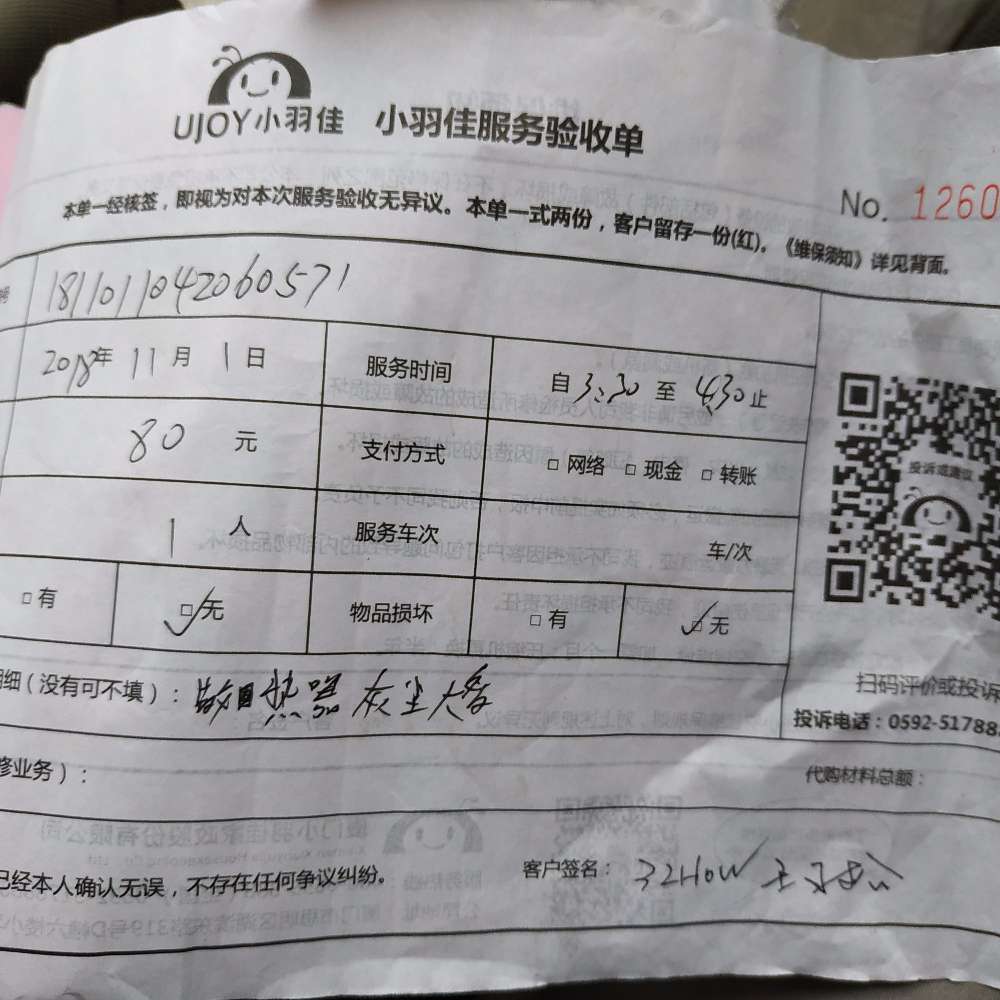 UJOY小羽佳 小羽佳服务验收单
No. 1260
本单一经核签，即视为对本次服务验收无异议。本单一式两份，客户留存一份(红)。《维保须知》详见背面。
1811011042060571
2018年 11月 1日 服务时间 自3:30至4:30止
80 元 支付方式 □网络 □现金 □转账
1 人 服务车次 车/次
投诉或建议
□有 □无 物品损坏 □有 □无
扫码评价或投诉
细（没有可不填）： 散热器灰尘大
投诉电话：0592-51788
修业务）： 代购材料总额：
已经本人确认无误，不存在任何争议纠纷。 客户签名：